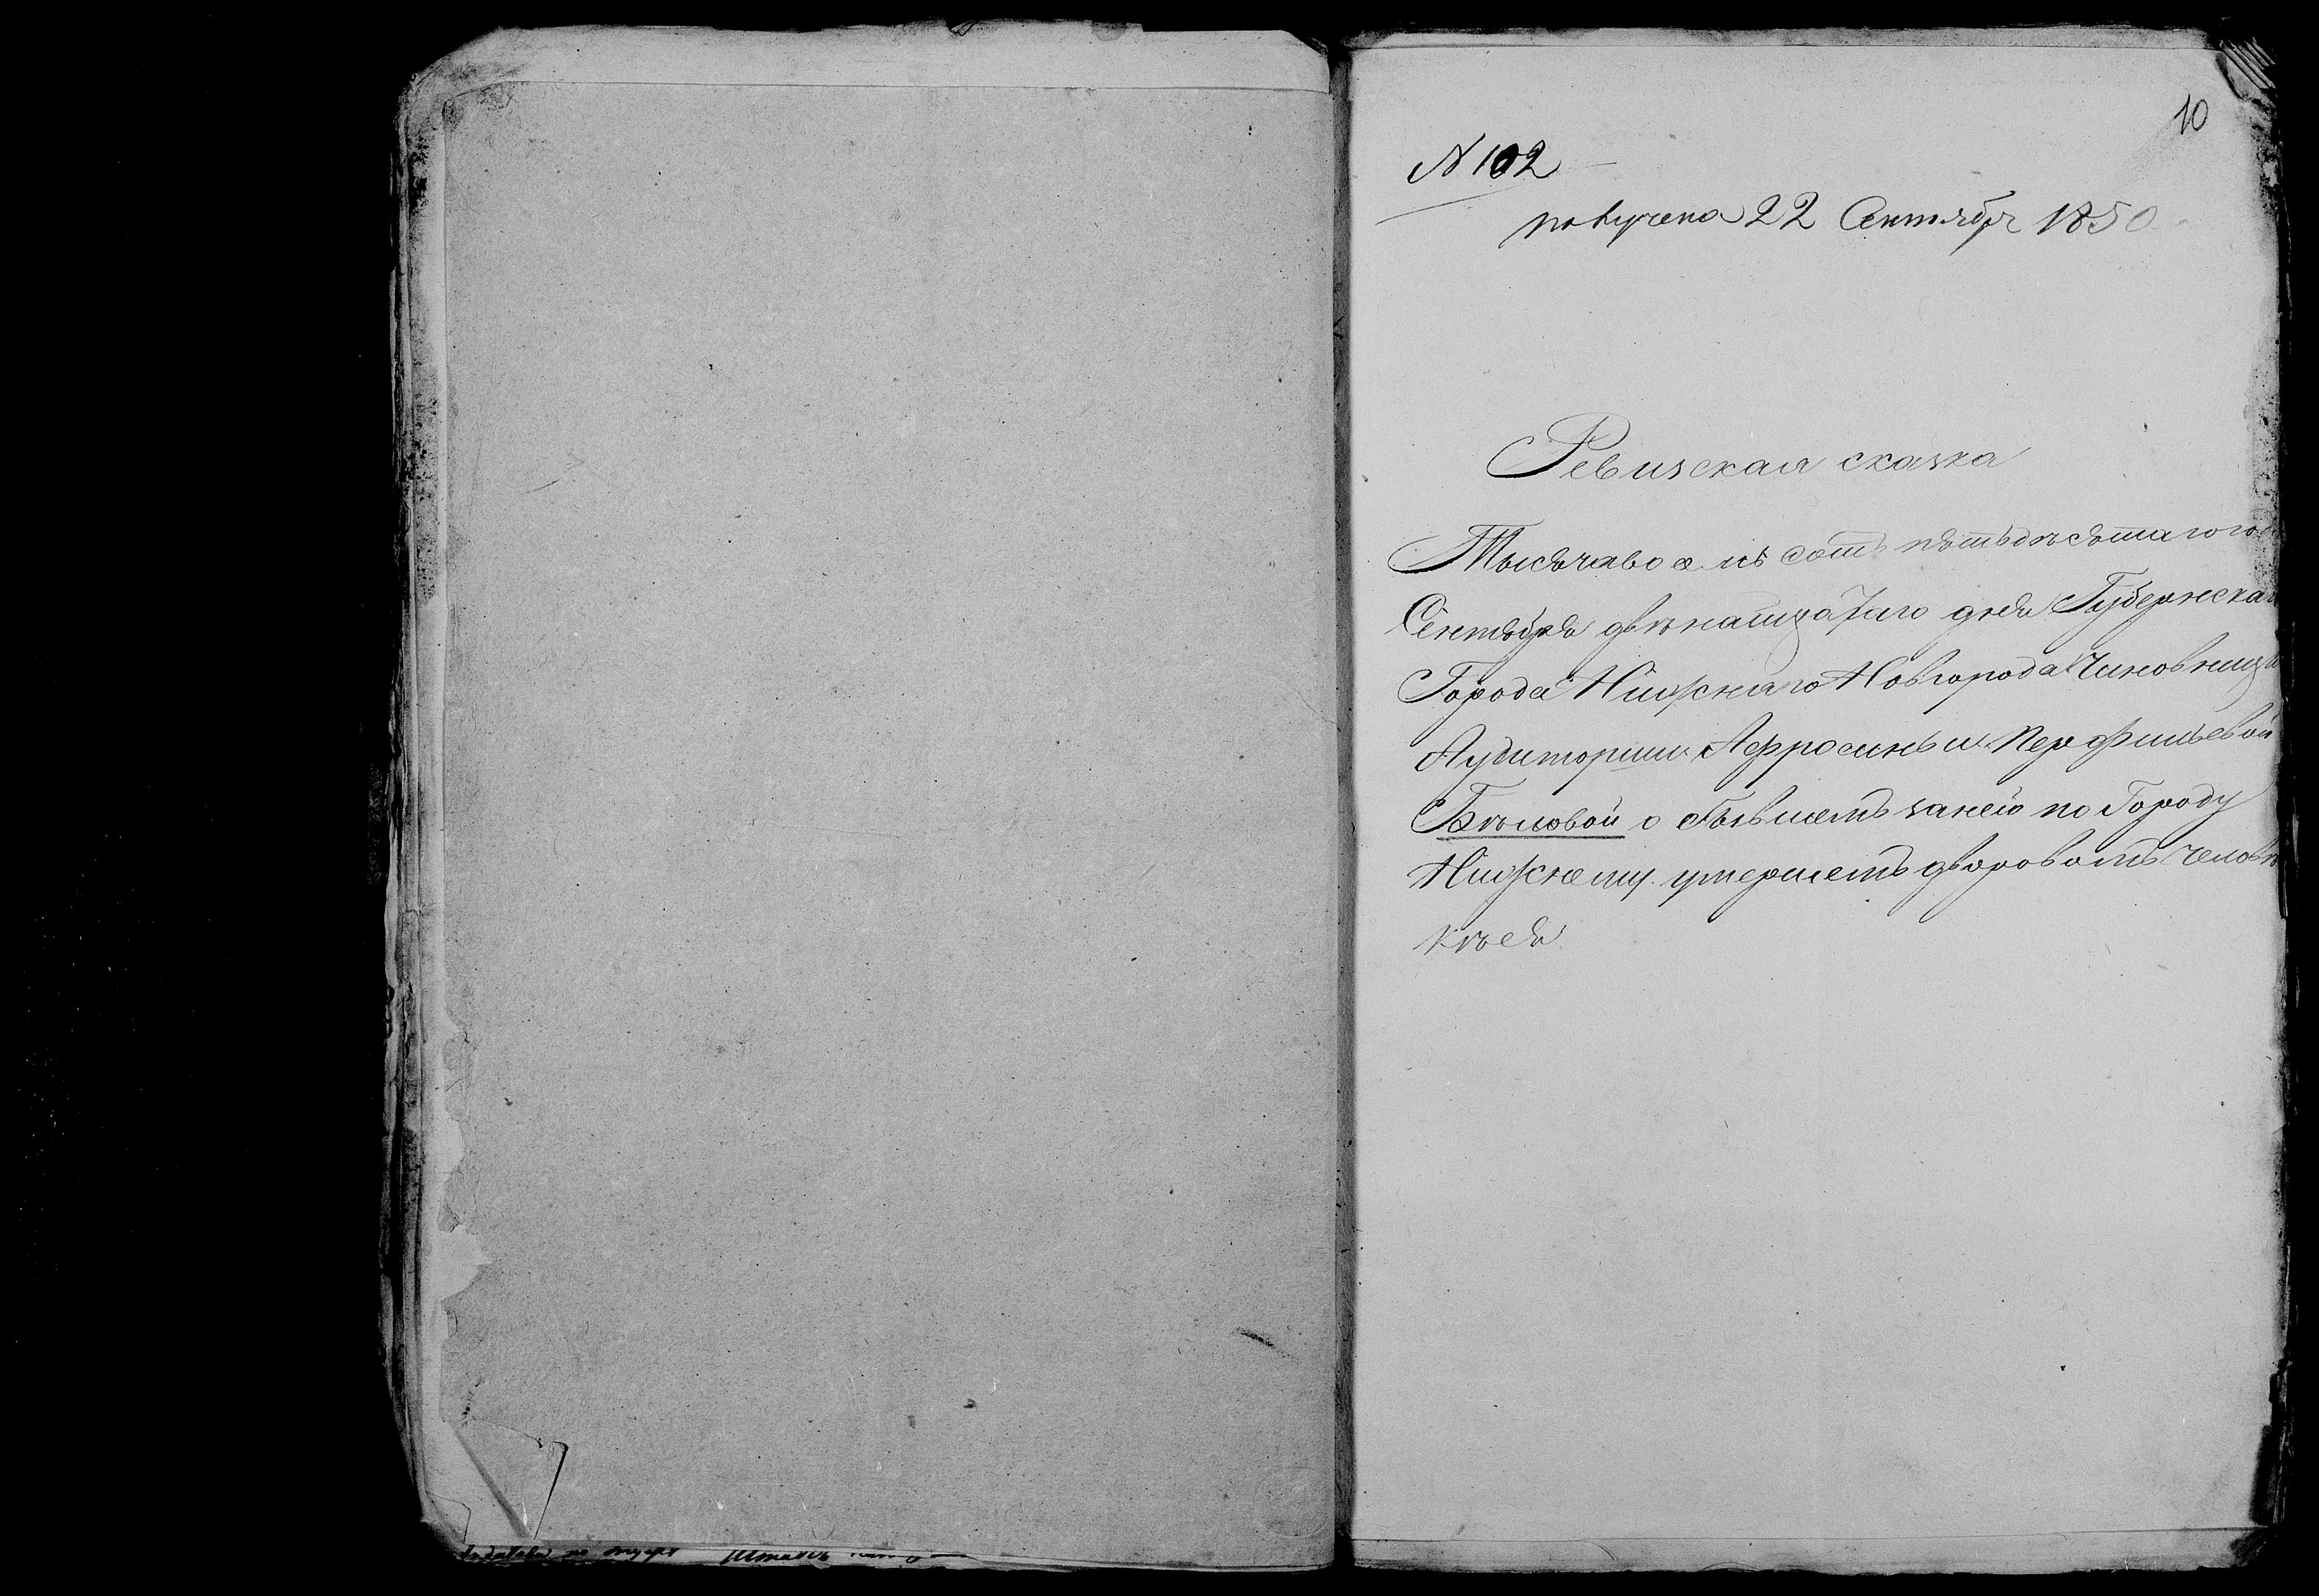 10
N 102
получена 22 Сентября 1850
Ревизская сказка
Тысяча восемь сотъ пятьдесятаго го
Сентября двенатцатаго дня Губернскаго
Города Нижнаго Новгорода Чиновницы
Аудиторши Афросиньи Перфильевой
Беловой о бывшемъ занею по Городу
Нижнему умершемъ дворовомъ челове
кѣ